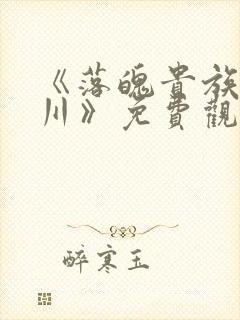 《落魄貴族
川》免費觀
醉寒玉